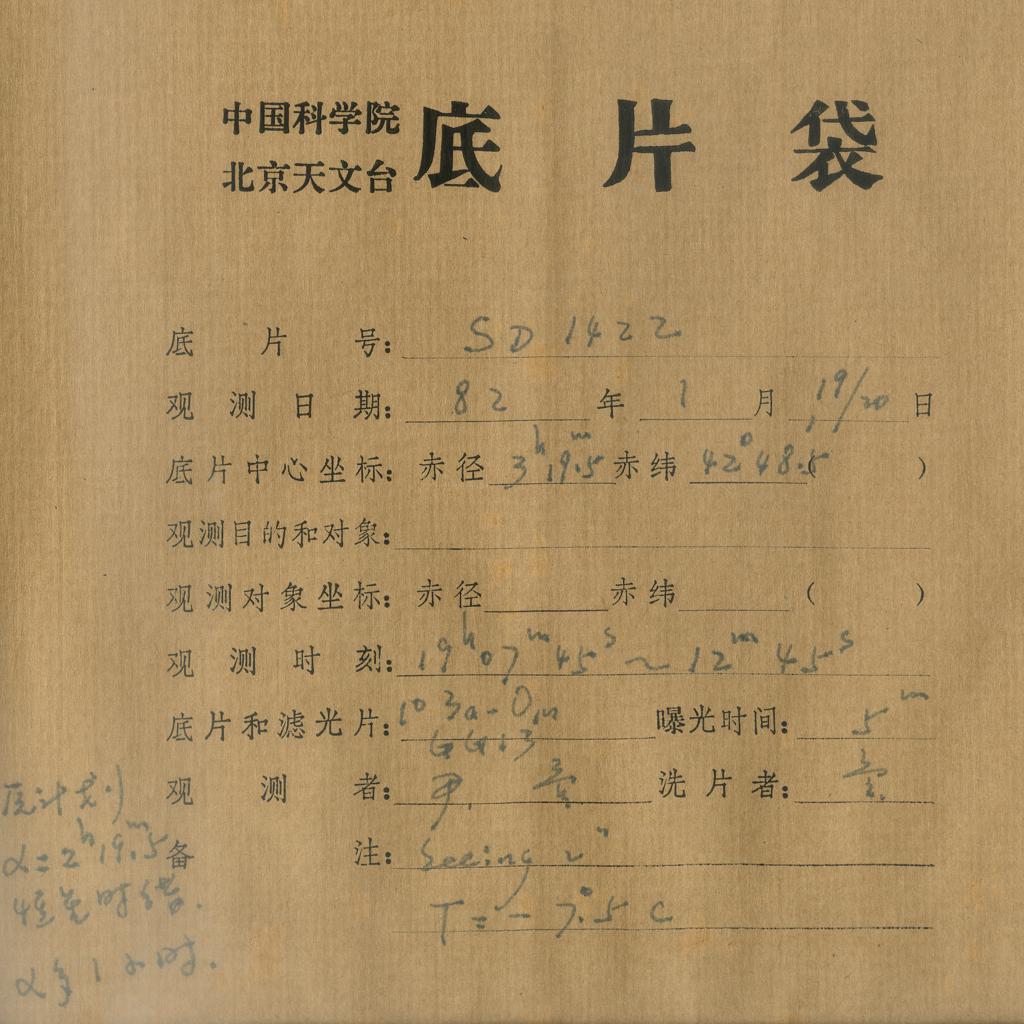 中国科学院
北京天文台
底片袋
底片号: SD 1422
观测日期: 82 年 1 月 19/20 日
底片中心坐标: 赤径 3ʰ19ᵐ.5 赤纬 42°48.5 ( )
观测目的和对象:
观测对象坐标: 赤径 赤纬 ( )
观测时刻: 19ʰ07ᵐ45ˢ ~ 12ᵐ45ˢ
底片和滤光片: 103a-O, 曝光时间: 5ᵐ
GG13
观测者: 洗片者:
备注: Seeing 2"
T = -7°.5 C
原计划
α=2ʰ19ᵐ.5
时错.
α 1小时.